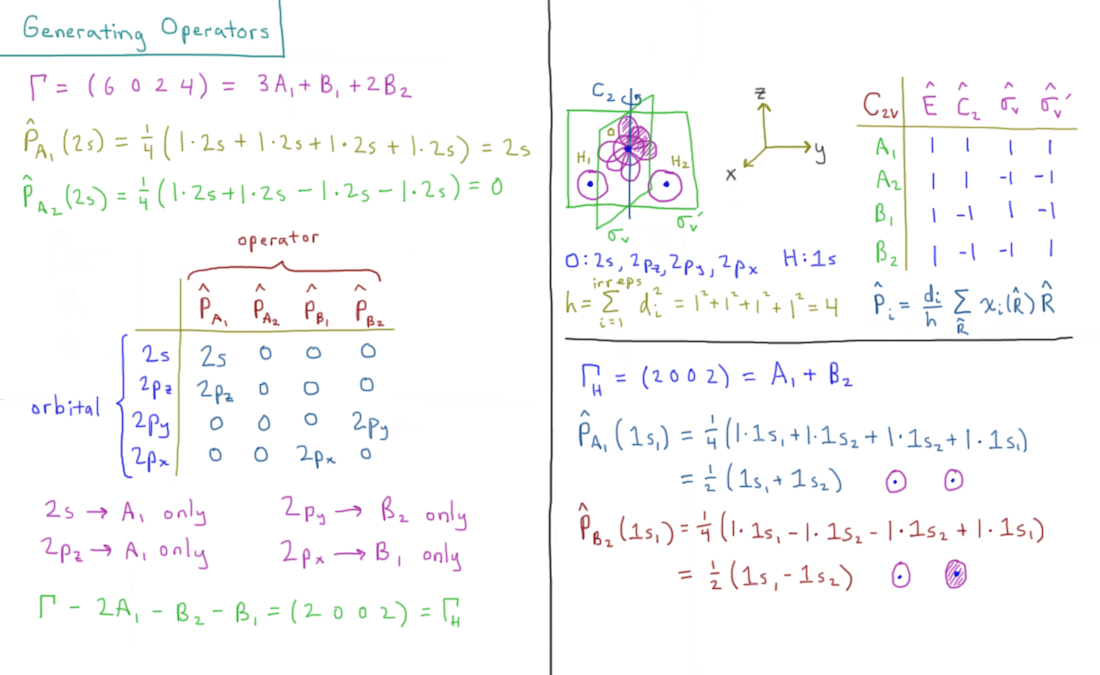 Generating Operators
Γ = (6 0 2 4) = 3A₁ + B₁ + 2B₂
P̂_A₁ (2s) = ¼ (1·2s + 1·2s + 1·2s + 1·2s) = 2s
P̂_A₂ (2s) = ¼ (1·2s + 1·2s - 1·2s - 1·2s) = 0
operator
P̂_A₁ P̂_A₂ P̂_B₁ P̂_B₂
orbital
2s 2s 0 0 0
2p_z 2p_z 0 0 0
2p_y 0 0 0 2p_y
2p_x 0 0 2p_x 0
2s → A₁ only 2p_y → B₂ only
2p_z → A₁ only 2p_x → B₁ only
Γ - 2A₁ - B₂ - B₁ = (2 0 0 2) = Γ_H
C₂
O
H₁ H₂
σ_v σ_v′
z
y
x
C₂ᵥ Ê Ĉ₂ σ̂_v σ̂_v′
A₁ 1 1 1 1
A₂ 1 1 -1 -1
B₁ 1 -1 1 -1
B₂ 1 -1 -1 1
O: 2s, 2p_z, 2p_y, 2p_x H: 1s
h = Σ_{i=1}^{irreps} d_i² = 1² + 1² + 1² + 1² = 4
P̂_i = d_i/h Σ_R̂ χ_i(R̂) R̂
Γ_H = (2 0 0 2) = A₁ + B₂
P̂_A₁ (1s₁) = ¼ (1·1s₁ + 1·1s₂ + 1·1s₂ + 1·1s₁)
= ½ (1s₁ + 1s₂)
P̂_B₂ (1s₁) = ¼ (1·1s₁ - 1·1s₂ - 1·1s₂ + 1·1s₁)
= ½ (1s₁ - 1s₂)